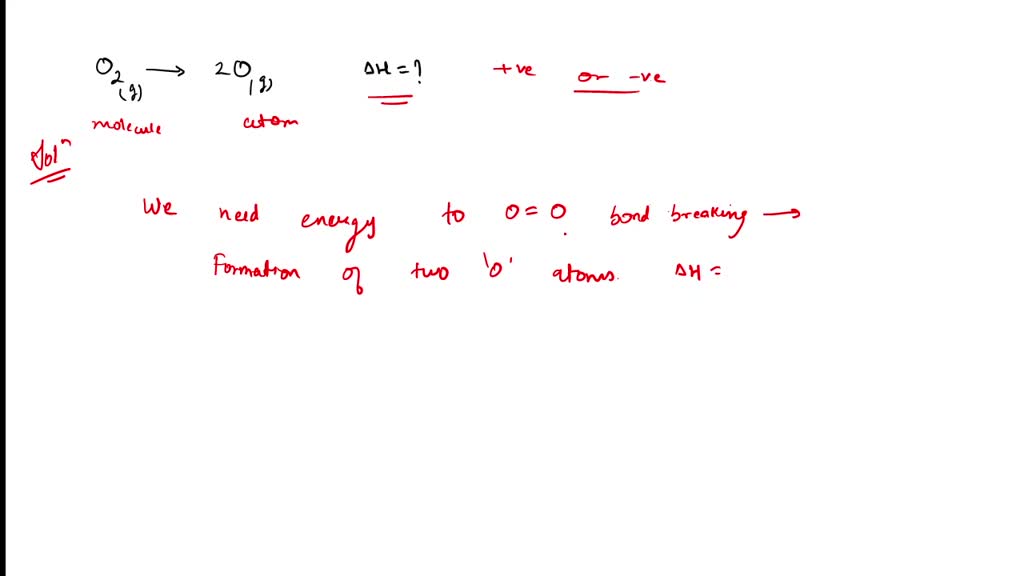 O₂(g) → 2O(g) ΔH = ? +ve or -ve
molecule atom
Solⁿ
We need energy to O=O bond breaking →
Formation of two 'O' atoms. ΔH =